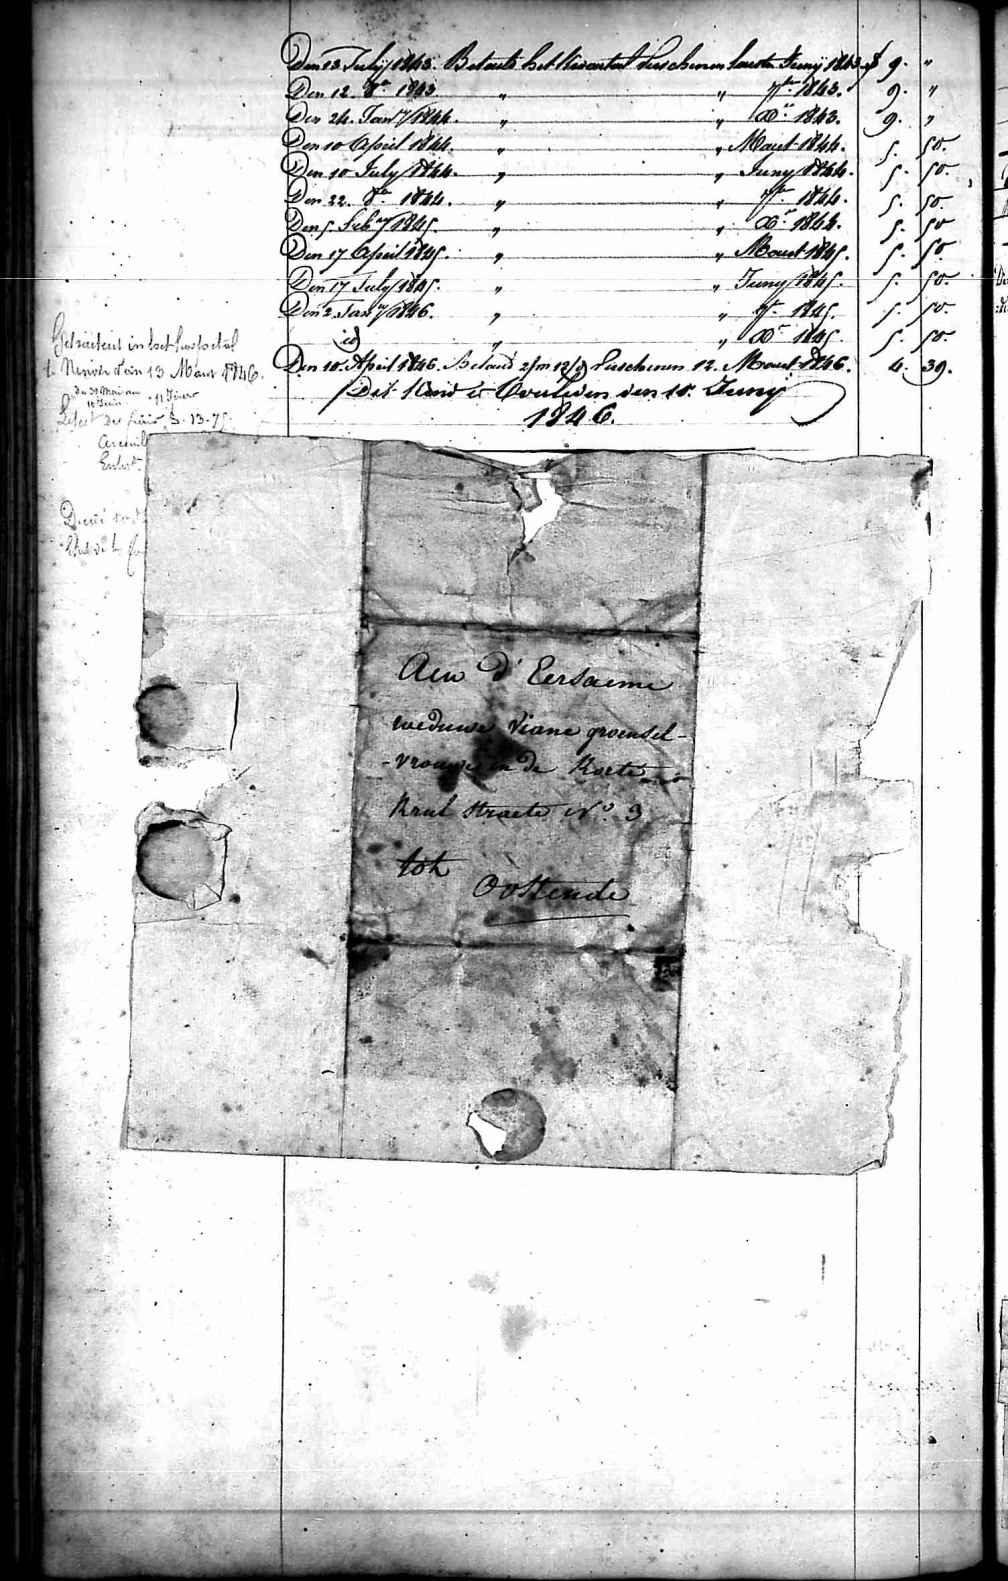 Den 13 July 1843. Betaald het Kwartal verschenen laeste Juny 1843 f 9. "
Den 12. 8.re 1843 " " 7.re 1843. 9. "
Den 24. Jan.y 1844. " " X.re 1843. 9. "
Den 10 April 1844. " " Maert 1844. 5. 50.
Den 10 July 1844. " " Juny 1844. 5. 50.
Den 22. 8.re 1844. " " 7.re 1844. 5. 50
Den 5. Feb.y 1845. " " X.r 1844. 5. 50
Den 17 April 1845. " " Maert 1845. 5. 50.
Den 17 July 1845. " " Juny 1845. 5. 50.
Den 2. Jan.y 1846. " " 7.r 1845. 5. 50.
id " " X.r 1845 5. 50.
Den 15. April 1846. Betaald 2/m 12/d verschenen 12. Maert 1846. 4. 39.
Dit Kind is Overleden den 15. Juny
1846.
in het hospitaal
13 Maert 1846.
du 31 Mai au
11 Juin 11 Jours
13-75
Aen d'Eersaeme
weduwe Viane groensel-
-vrouwe in de Korte
Krul straete N.o 3
tot
Oostende